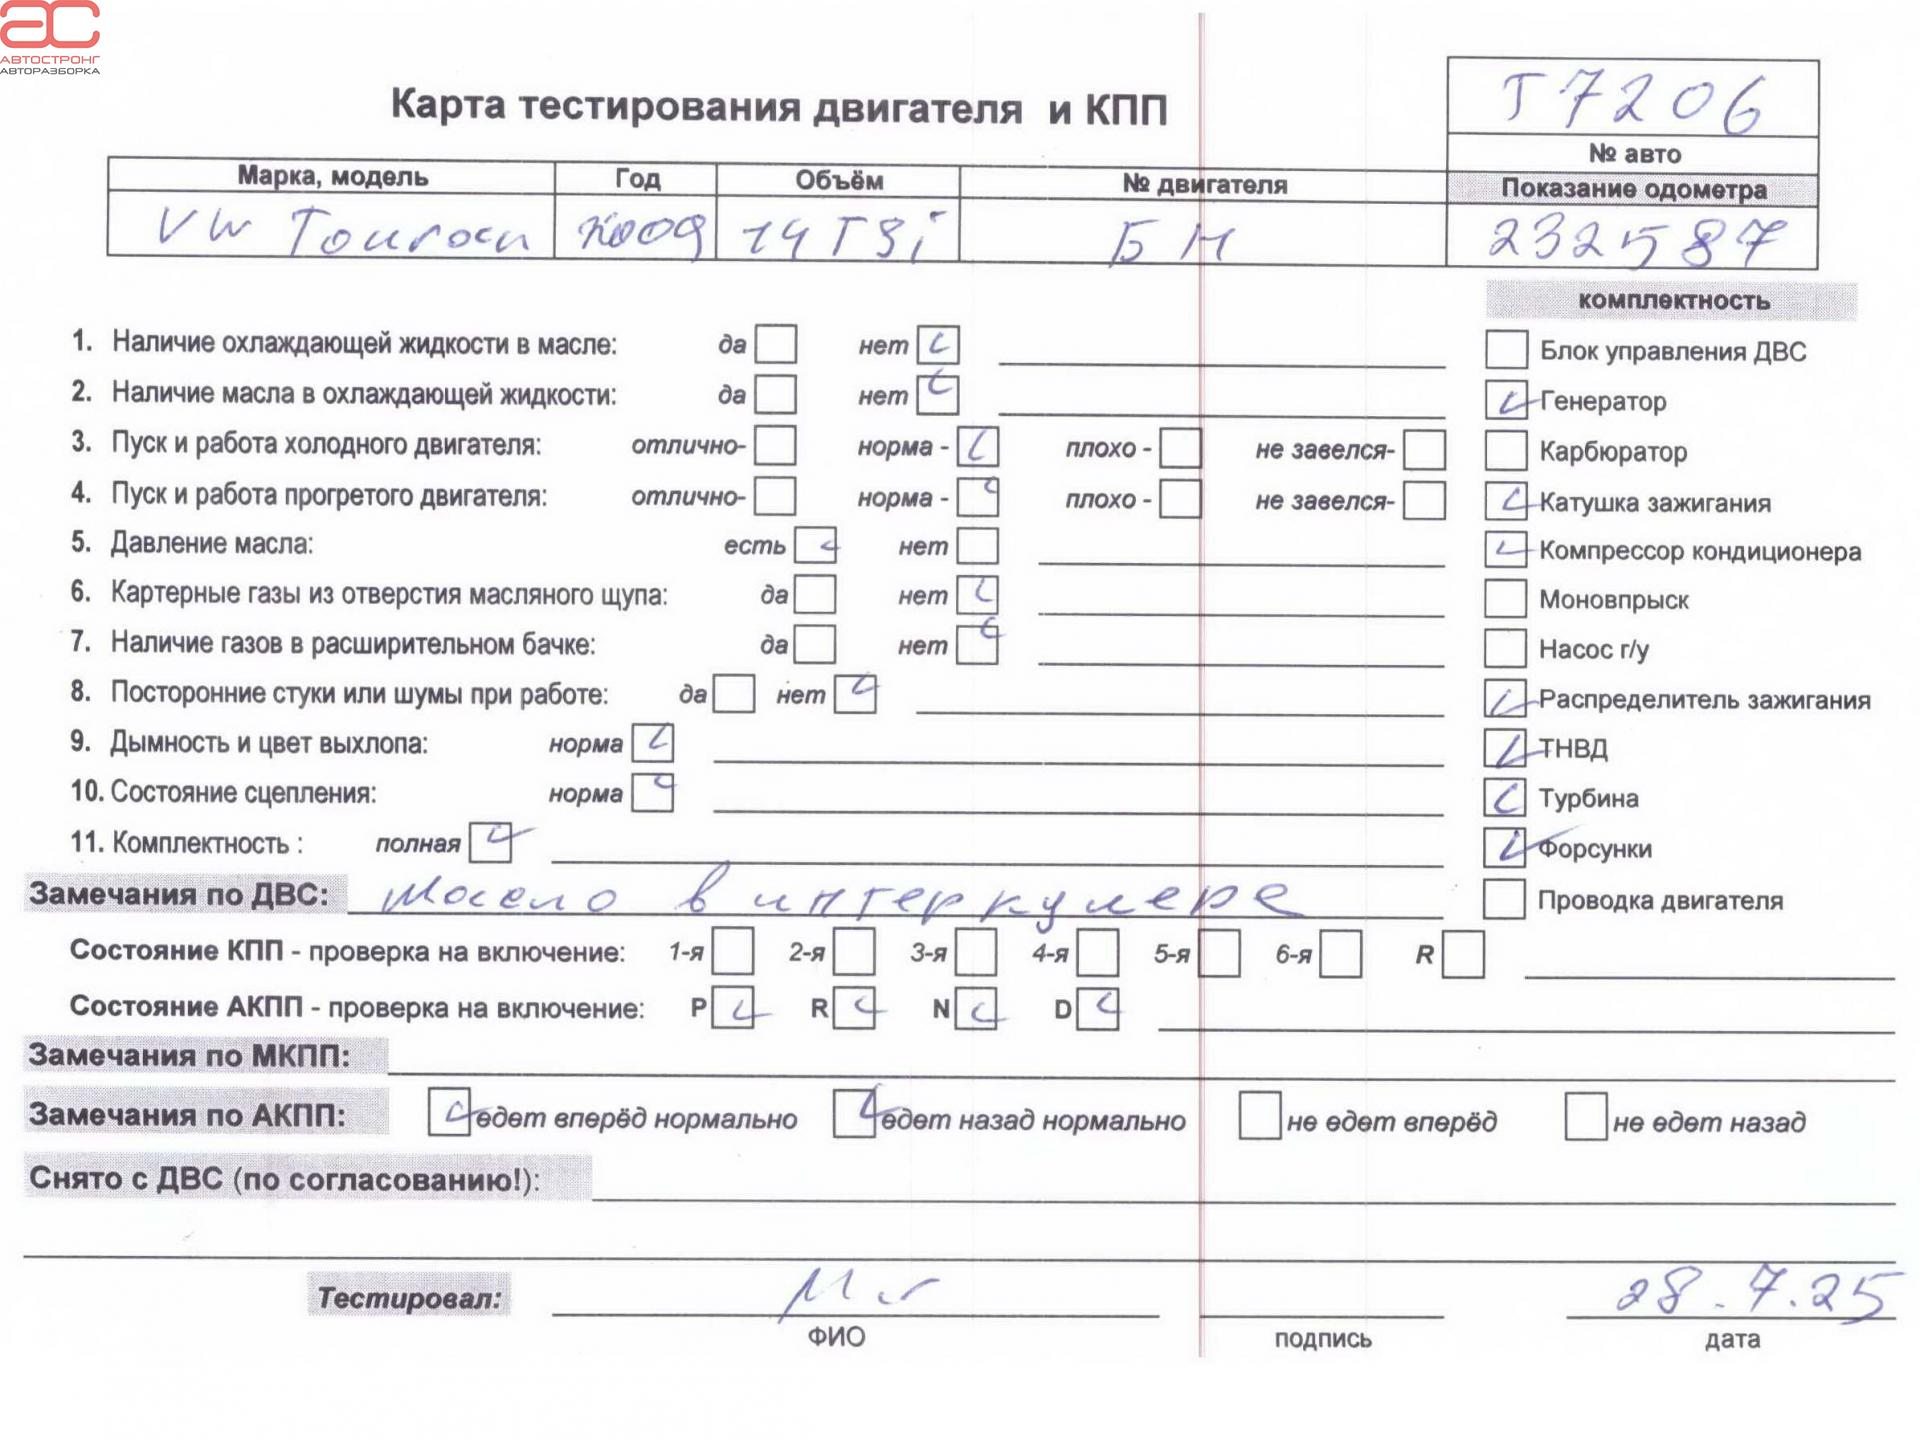 АВТОСТРОНГ
АВТОРАЗБОРКА
Т7206
Карта тестирования двигателя и КПП
№ авто
Марка, модель Год Объём № двигателя Показание одометра
VW Touran 2009 14 TSi БН 232587
комплектность
1. Наличие охлаждающей жидкости в масле: да нет
Блок управления ДВС
2. Наличие масла в охлаждающей жидкости: да нет
Генератор
3. Пуск и работа холодного двигателя: отлично- норма - плохо - не завелся-
Карбюратор
4. Пуск и работа прогретого двигателя: отлично- норма - плохо - не завелся-
Катушка зажигания
5. Давление масла: есть нет
Компрессор кондиционера
6. Картерные газы из отверстия масляного щупа: да нет
Моновпрыск
7. Наличие газов в расширительном бачке: да нет
Насос г/у
8. Посторонние стуки или шумы при работе: да нет
Распределитель зажигания
9. Дымность и цвет выхлопа: норма
ТНВД
10. Состояние сцепления: норма
Турбина
11. Комплектность : полная
Форсунки
Замечания по ДВС: Масло в интеркулере
Проводка двигателя
Состояние КПП - проверка на включение: 1-я 2-я 3-я 4-я 5-я 6-я R
Состояние АКПП - проверка на включение: P R N D
Замечания по МКПП:
Замечания по АКПП: едет вперёд нормально едет назад нормально не едет вперёд не едет назад
Снято с ДВС (по согласованию!):
Тестировал: 28.7.25
ФИО подпись дата